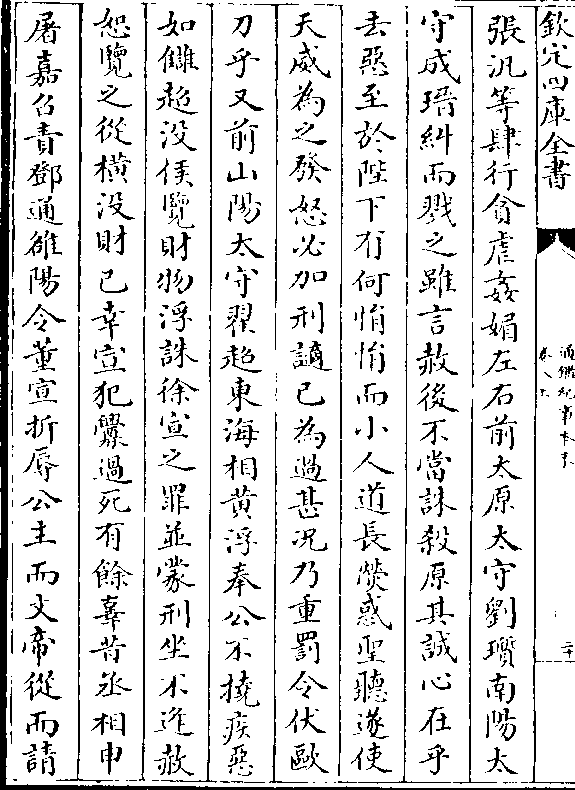 欽定四庫全書
通鑑紀事本末
張汎等肆行貪虐姦媚左右前太原太守劉瓆南陽太
守成瑨糾而戮之雖言赦後不當誅殺原其誠心在乎
去惡至於陛下有何悁悁而小人道長熒惑聖聽遂使
天威為之發怒必加刑讁已為過甚况乃重罰令伏歐
刀乎又前山陽太守翟超東海相黄浮奉公不撓疾惡
如讎超没侯覽財物浮誅徐宣之罪並蒙刑坐不逢赦
恕覽之從横没財已幸宣犯釁過死有餘辜昔丞相申
屠嘉召責鄧通雒陽令董宣折辱公主而文帝從而請